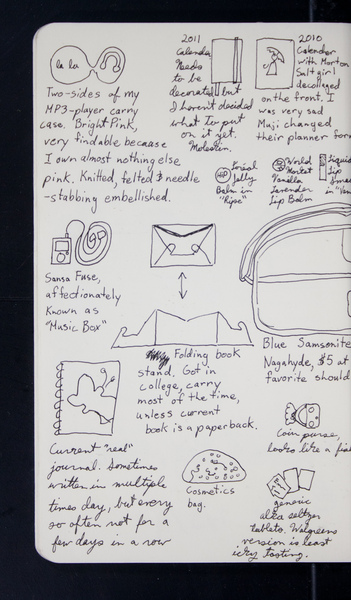 la la
Two-sides of my
MP3-player carry
case. Bright Pink,
very findable because
I own almost nothing else
pink. Knitted, felted & needle
-stabbing embellished.
2011
Calendar
Needs
to be
decorated, but
I haven't decided
what I'll put
on it yet.
Moleskin.
2010
Calender
with Morton
Salt girl
decollaged
on the front. I
was very sad
Muji changed
their planner for
L'oreal
Jelly
Balm in
"Ripe"
World
Market
Vanilla
Lavender
Lip Balm
Liquid
Lip
in "
Sansa Fuse,
affectionately
known as
"Music Box"
Folding book
stand. Got in
college, carry
most of the time,
unless current
book is a paperback.
Blue Samsonite
Nagahyde, $5 at
favorite should
Current "real"
journal. Sometimes
written in multiple
times day, but every
so often not for a
few days in a row
Cosmetics
bag.
Coin purse,
looks like a fish
generic
alka seltzer
tablets. Walgreens
version is least
icky tasting.